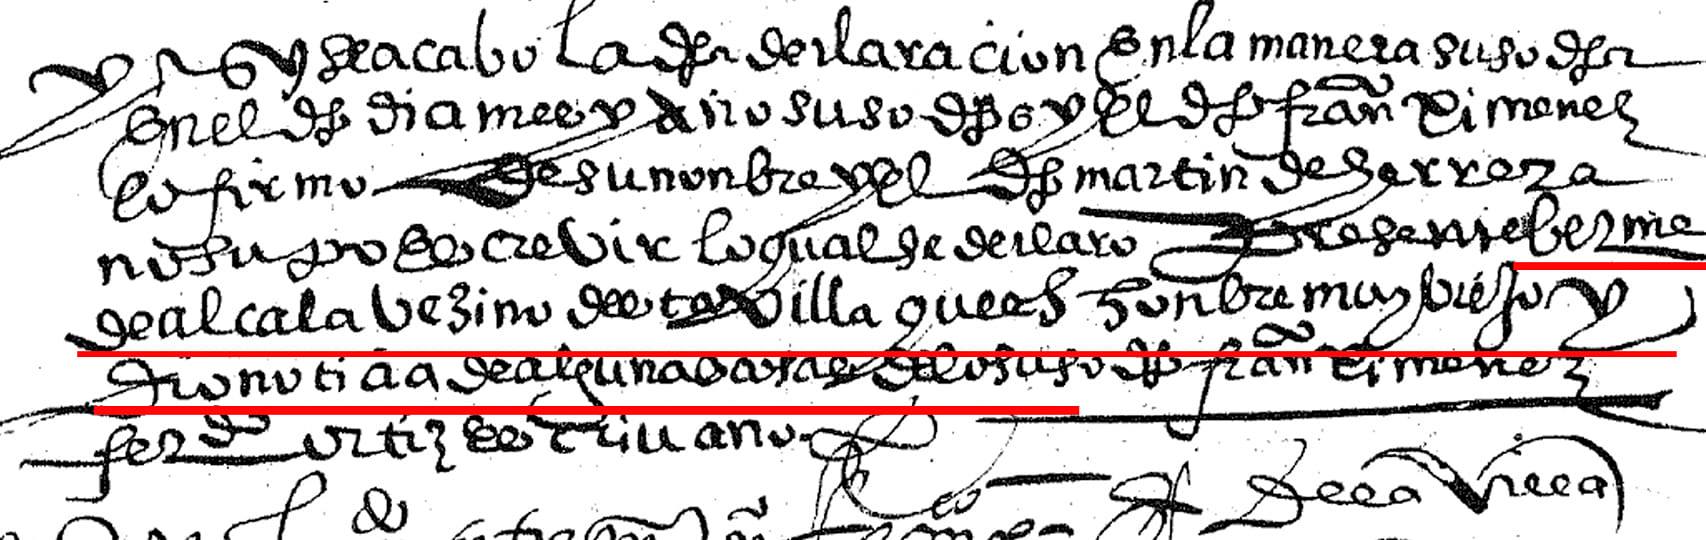 y asy se acabo la dha declaracion en la manera suso dha
en el dho dia mes y año suso dhos y el dho franco ximenez
lo firmo de su nonbre y el dho martin de herreza
no supo escrevir lo qual se declaro presente bermo
de alcala vezino desta villa que es honbre muy biejo y
dio noticia de algunas cosas de lo suso dho franco ximenez
ferdo ortiz escrivano
de la Villa